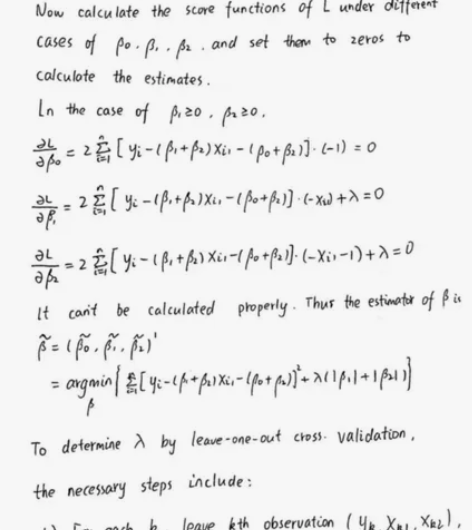 Now calculate the score functions of L under different
cases of β₀. β₁. β₂. and set them to zeros to
calculate the estimates.
In the case of β₁≥0, β₂≥0,
∂L/∂β₀ = 2 Σᵢ₌₁ⁿ [ yᵢ-(β₁+β₂)Xᵢ₁-(β₀+β₂)]·(-1) = 0
∂L/∂β₁ = 2 Σᵢ₌₁ⁿ [ yᵢ-(β₁+β₂)Xᵢ₁-(β₀+β₂)]·(-Xᵢ₁)+λ=0
∂L/∂β₂ = 2 Σᵢ₌₁ⁿ [ yᵢ-(β₁+β₂)Xᵢ₁-(β₀+β₂)]·(-Xᵢ₁-1)+λ=0
It can't be calculated properly. Thus the estimator of β is
β̃ = (β̃₀, β̃₁, β̃₂)'
= argmin_β { Σᵢ₌₁ⁿ [yᵢ-(β₁+β₂)Xᵢ₁-(β₀+β₂)]²+λ(|β₁|+|β₂|)}
To determine λ by leave-one-out cross-validation,
the necessary steps include:
For each k, leave kth observation (yₖ, Xₖ₁, Xₖ₂),